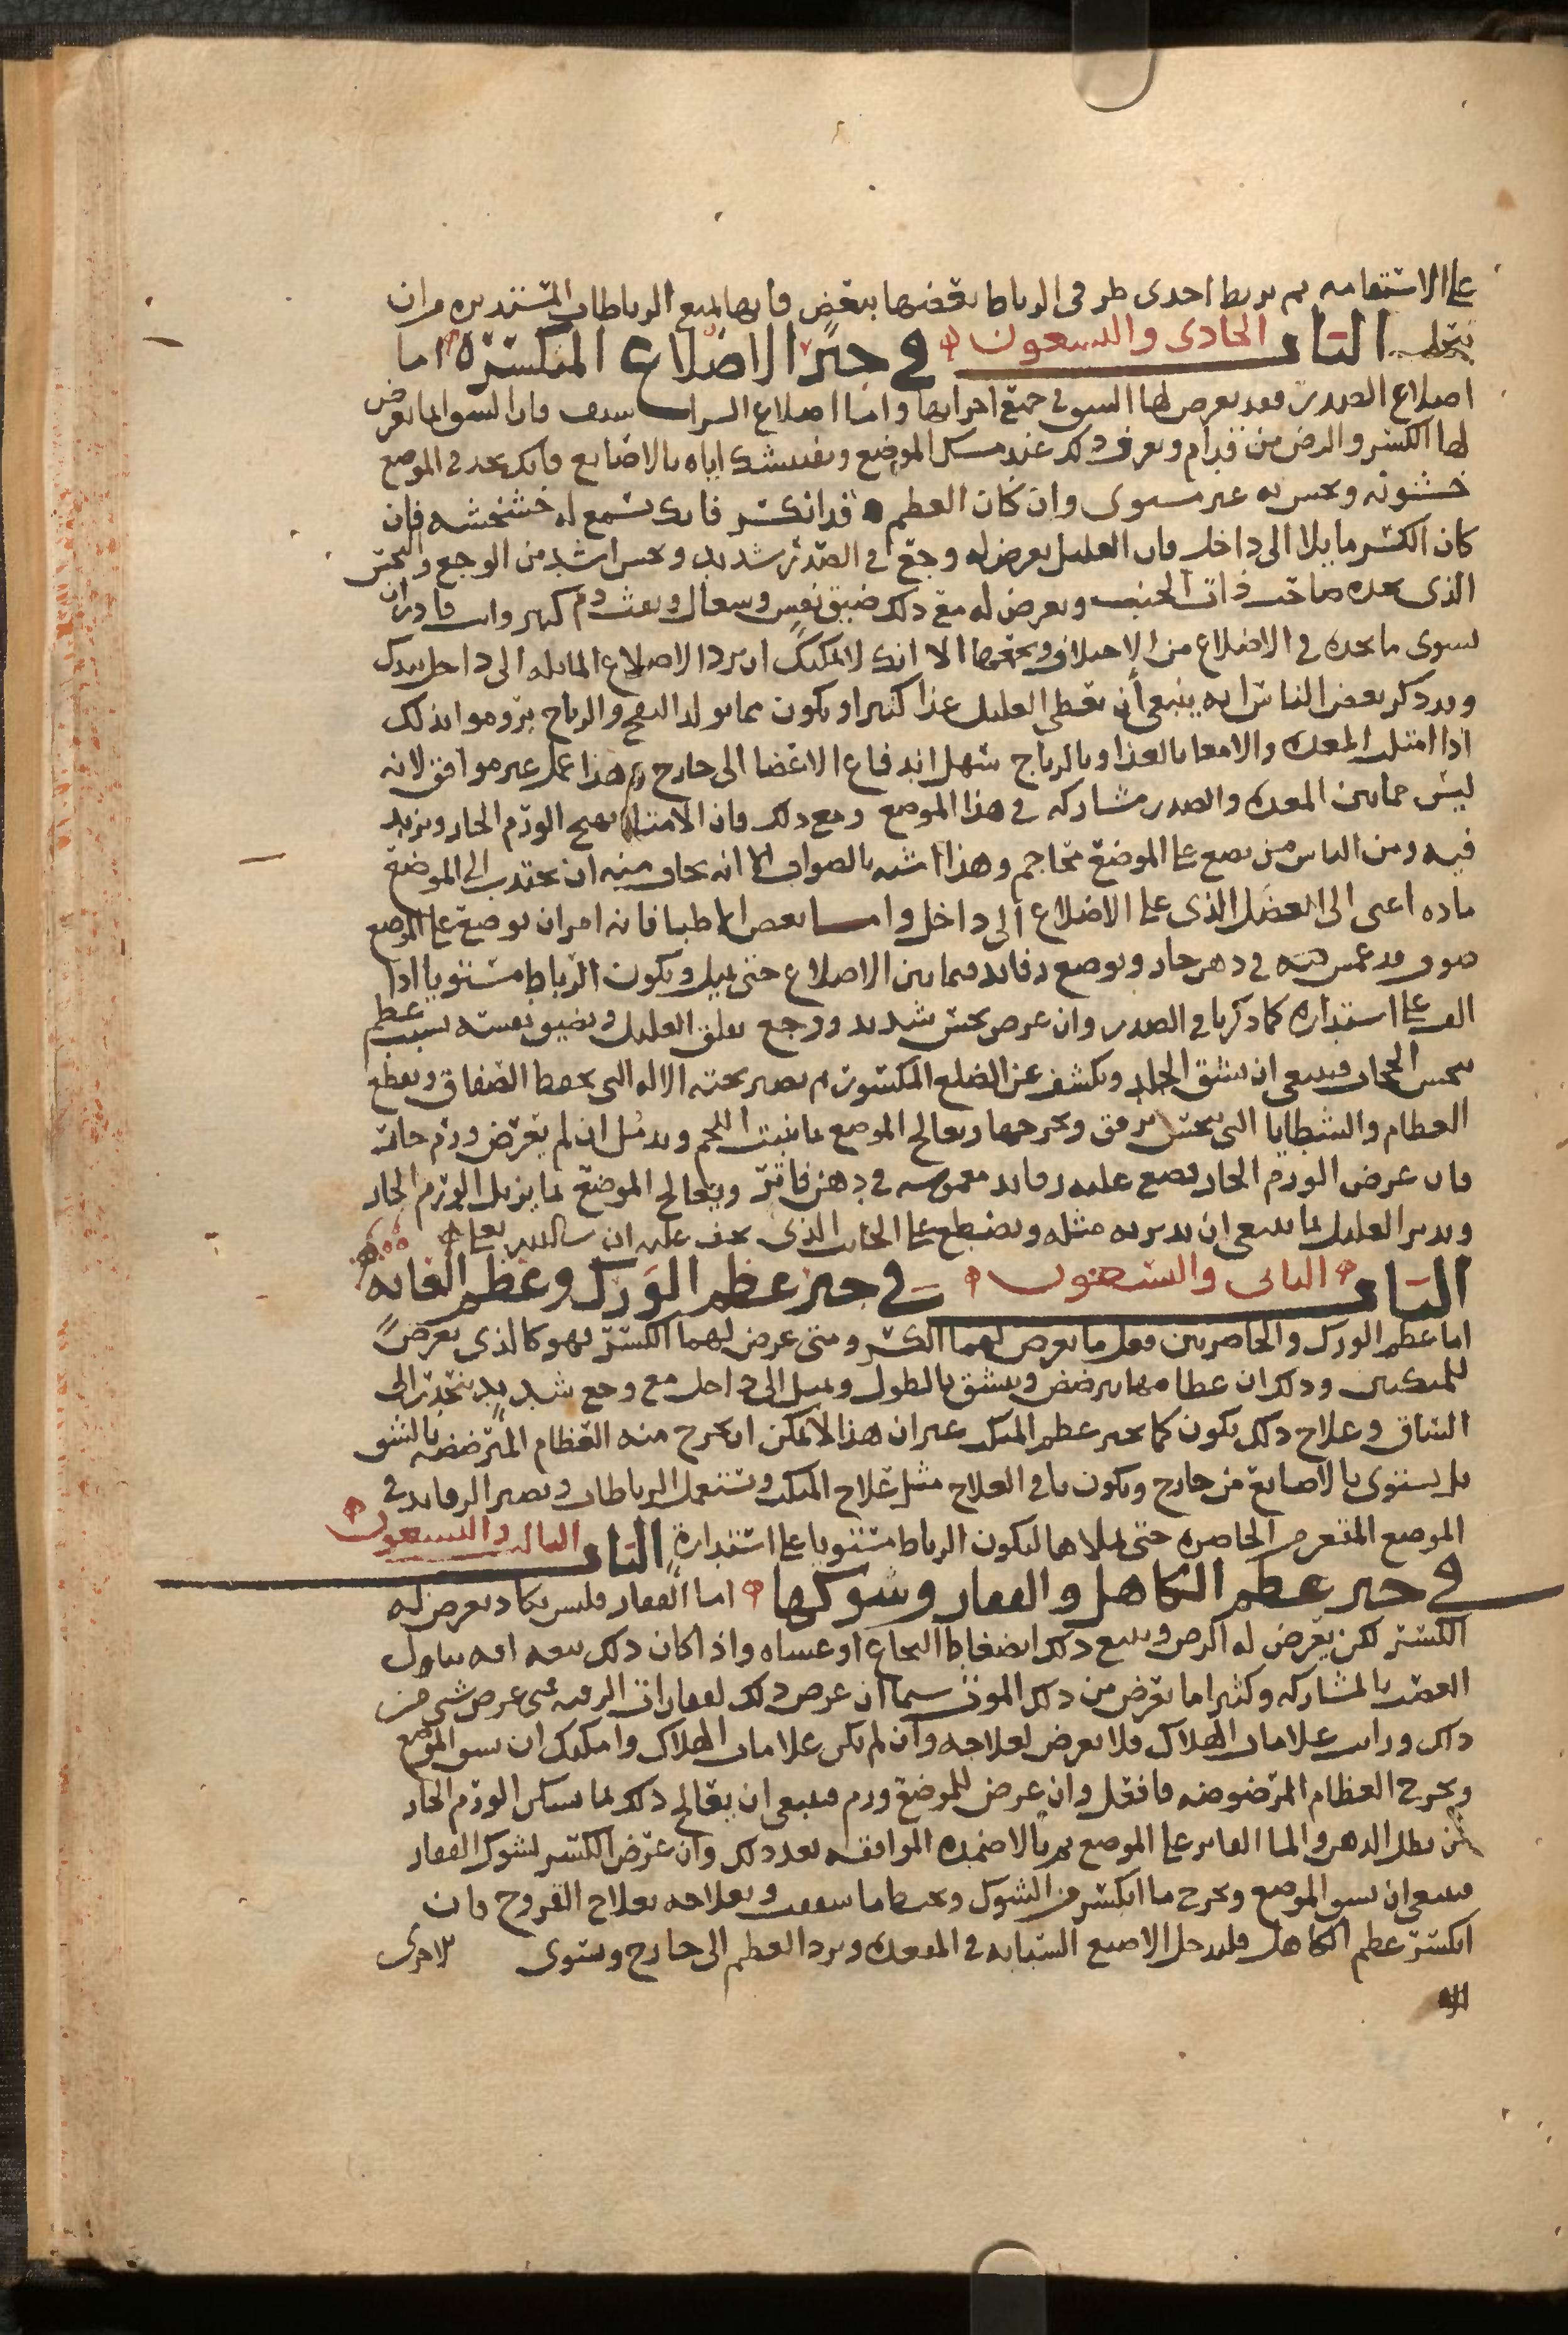 على الاستقامه ثم يربط احدى طرفى الرباط بعضها ببعض فانها تمنع الرباطات المستديره من ان
تنحل الباب الحادى والتسعون فى جبر الاضلاع المنكسره اما
اضلاع الصدر فقد يعرض لها الكسر فى جميع اجزايها واما اضلاع فان الكسر انما يعرض
لها الكسر والرض من قدام ويعرف ذلك عند مسك الموضع وتفتيشك اياه بالاصابع فانك تجد فى الموضع
خشونه وتحس به غير مستوى وان كان العظم قد انكسر فانك تسمع له خشخشه فان
كان الكسر مايلا الى داخل فان العليل يعرض له وجع فى الصدر شديد ونخس اشد من الوجع والنخس
الذى يجده صاحب ذات الجنب ويعرض له مع ذلك ضيق نفس وسعال ونفث دم كثير وانت قادر ان
تسوى ما تجده فى الاضلاع من الاختلاف وتجمعها الا انك لا يمكنك ان ترد الاضلاع المايله الى داخل بيدك
وقد ذكر بعض الناس انه ينبغى أن يعطى العليل غذا كثيرا ويكون مما يولد النفخ والرياح يروموا بذلك
اذا امتلت المعده والامعا بالغذا وبالرياح سهل اندفاع الاعضا الى خارج وهذا عمل غير موافق لانه
ليس فما بين المعده والصدر مشاركه فى هذا الموضع ومع ذلك فان الامتلا يهيج الورم الحار ويزيد
فيه ومن الناس من يضع على الموضع محاجم وهذا اشبه بالصواب الا انه يخاف منه ان تجتذب الى الموضع
ماده اعنى الى العضل الذى على الاضلاع الى داخل واما بعض الاطبا فانه امر ان توضع على الموضع
صوف قد غمس فى دهن حار وتوضع رفايد فيما بين الاضلاع حتى يميل ويكون الرباط مستويا اذا
الف على استداره كما ذكرنا فى الصدر وان عرض نخس شديد ووجع يقلق العليل ويضيق نفسه بسبب عظم
ينخس الحجاب فينبغى ان يشق الجلد ويكشف عن الضلع المكسور ثم يصير تحته الاله التى تحفظ الصفاق ويقطع
العظام والشظايا التى تنخس برفق ويخرجها ويعالج الموضع بما ينبت اللحم ويدمل ان لم يعرض ورم حار
فان عرض الورم الحار فضع عليه رفايد مغموسه فى دهن فاتر ويعالج الموضع بما يزيل الورم الحار
ويدبر العليل بما ينبغى ان يدبر به مثله ويضطجع على الجانب الذى يخف عليه ان شا الله تعالى
الباب الثانى والتسعون فى جبر عظم الورك وعظم العانه
اما عظم الورك والخاصرتين فقل ما يعرض لهما الكسر ومتى عرض لهما الكسر فهو كالذى يعرض
للمنكبين وذلك ان عظامهما يترضض وينشق بالطول ويميل الى داخل مع وجع شديد ينحدر الى
الساق وعلاج ذلك يكون كما يجبر عظم المنكب غير ان هذا لا يمكن ان يخرج منه العظام المترضضه بالشق
بل يستوى بالاصابع من خارج ويكون باقى العلاج مثل علاج المنكب وتستعمل الرباطات وتصير الرفايد فى
الموضع المتعرض الخاصره حتى يملاها ليكون الرباط مستويا على استداره الباب الثالث والتسعون
فى جبر عظم الكاهل والفقار وشوكها اما الفقار فليس يكاد يعرض له
الكسر لكن يعرض له الرض ويتبع ذلك انضغاط النخاع او غشاه واذا كان ذلك تبعه افه تناول
العصب بالمشاركه وكثيرا ما يعرض من ذلك الموت سيما ان عرض ذلك لفقارات الرقبه متى عرض شى من
ذلك ورايت علامات الهلاك فلا تعرض لعلاجه وان لم تكن علامات الهلاك وامكنك ان تشق الموضع
وتخرج العظام المرضوضه فافعل وان عرض للموضع ورم فينبغى ان يعالج ذلك بما يسكن الورم الحار
من نطل الدهن والما الفاتر على الموضع ثم بالاضمده الموافقه بعد ذلك وان عرض الكسر لشوك الفقار
فينبغى ان تشق الموضع وتخرج ما انكسر من الشوك وتخيط ما شققت وتعالجه بعلاج القروح فان
انكسر عظم الكاهل فليدخل الاصبع السبابه فى المقعده ويرد العظم الى خارج ويسوى